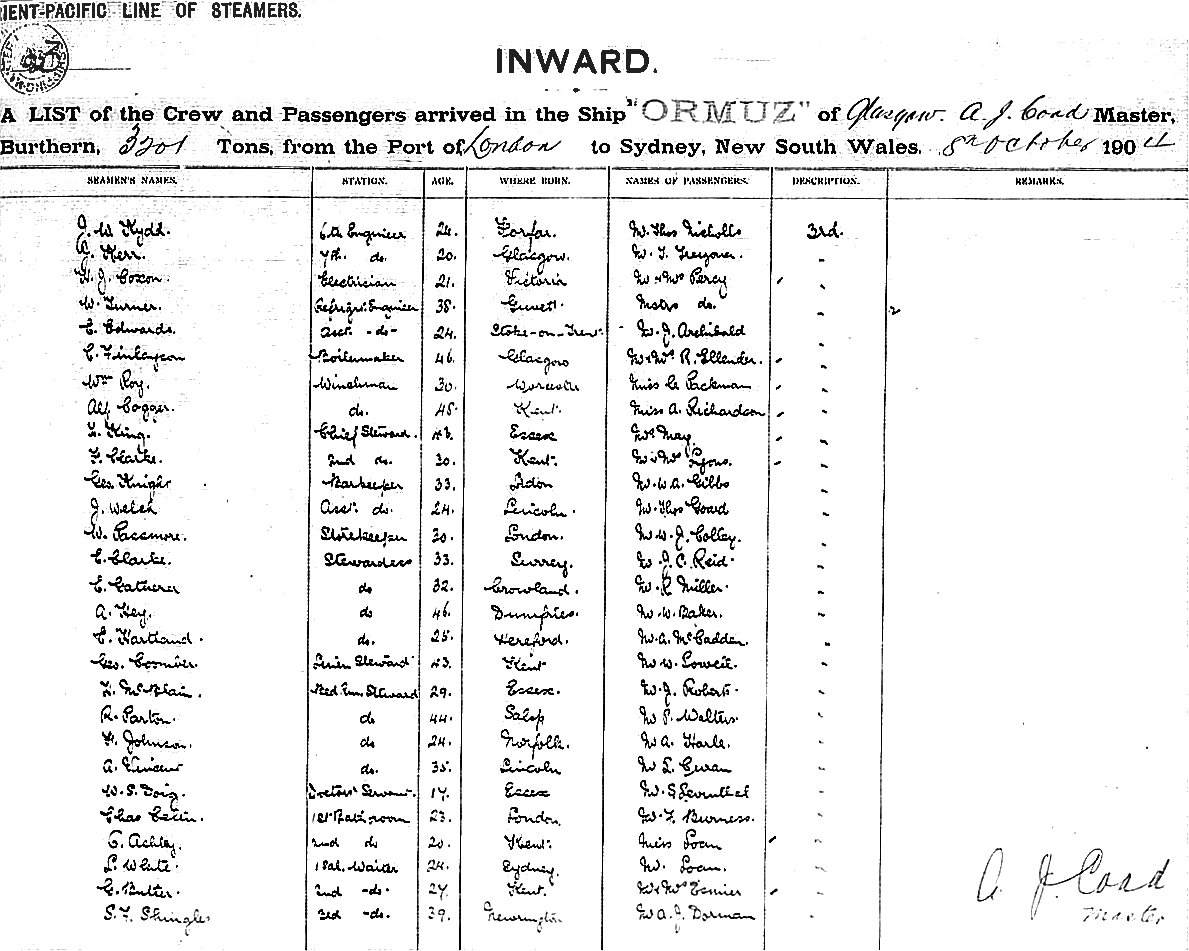 IENT-PACIFIC LINE OF STEAMERS.
INWARD.
A LIST of the Crew and Passengers arrived in the Ship "ORMUZ" of Glasgow. A. J. Coad Master,
Burthern, 3201 Tons, from the Port of London to Sydney, New South Wales, 8th October 1904
SEAMEN'S NAMES. STATION. AGE. WHERE BORN. NAMES OF PASSENGERS. DESCRIPTION. REMARKS.
J. W. Kydd. 6th Engineer 24. Forfar. Mr Thos Nicholls 3rd.
Kerr. 7th. do. 20. Glasgow. Mr T.
H. J. Coxon. Electrician 21. Victoria Mr & Mrs Percy
W. Turner. Refrigr. Engineer 38. Mstrs do. 2
E. Edwards. Asst. -do- 24. Stoke-on-Trent Mr J. Archibald
C. Finlayson Boilermaker 46. Glasgow Mr & Mrs R. Ellender.
Wm Roy. Winchman 30. Worcester Miss C. Packman
Alf Cogger. do. 48. Kent. Miss A. Richardson
King. Chief Steward. 43. Essex Mrs May
F. Clarke. 2nd do. 30. Kent. Mr & Mrs Lyons.
Geo. Knight Barkeeper 33. Mr W. A. Gibbs
J. Welsh Asst. do. 24. Lincoln. Mr Thos Goard
W. Passmore. Storekeeper 30. London. Mr W. J. Colley.
E. Clarke. Stewardess 33. Surrey. Mr J. C. Reid.
E. Catherer do 32. Crowland. Mr R Miller.
A. Hey. do 46. Dumfries. Mr W. Baker.
E. Hartland. do. 25. Hereford. Mr A. McCadden.
Geo. Coomber Linen Steward 43. Kent Mr W. Loweil.
McBlain. Bed Rm. Steward 29. Essex. Mr J. Roberts.
R. Parton. do 44. Salop Mr P. Walters.
H. Johnson. do 24. Norfolk. Mr A. Harle.
A. Vincent do. 35. Lincoln Mr L.
W. S. Doig. Doctors' Servant. 17. Essex Mr S Leventhal
Chas 1st Bathroom 23. London. Mr F. Burness.
C. Ashley. 2nd do 20. Kent. Miss Loan
L. White. 1 Sal. Waiter 24. Sydney. Mr. Loan.
C. Butler. 2nd -do- 27 Kent. Mr & Mrs
S. F. Shingler 3rd -do. 39. Newington Mr A. J. Dorman
A. J. Coad
Master